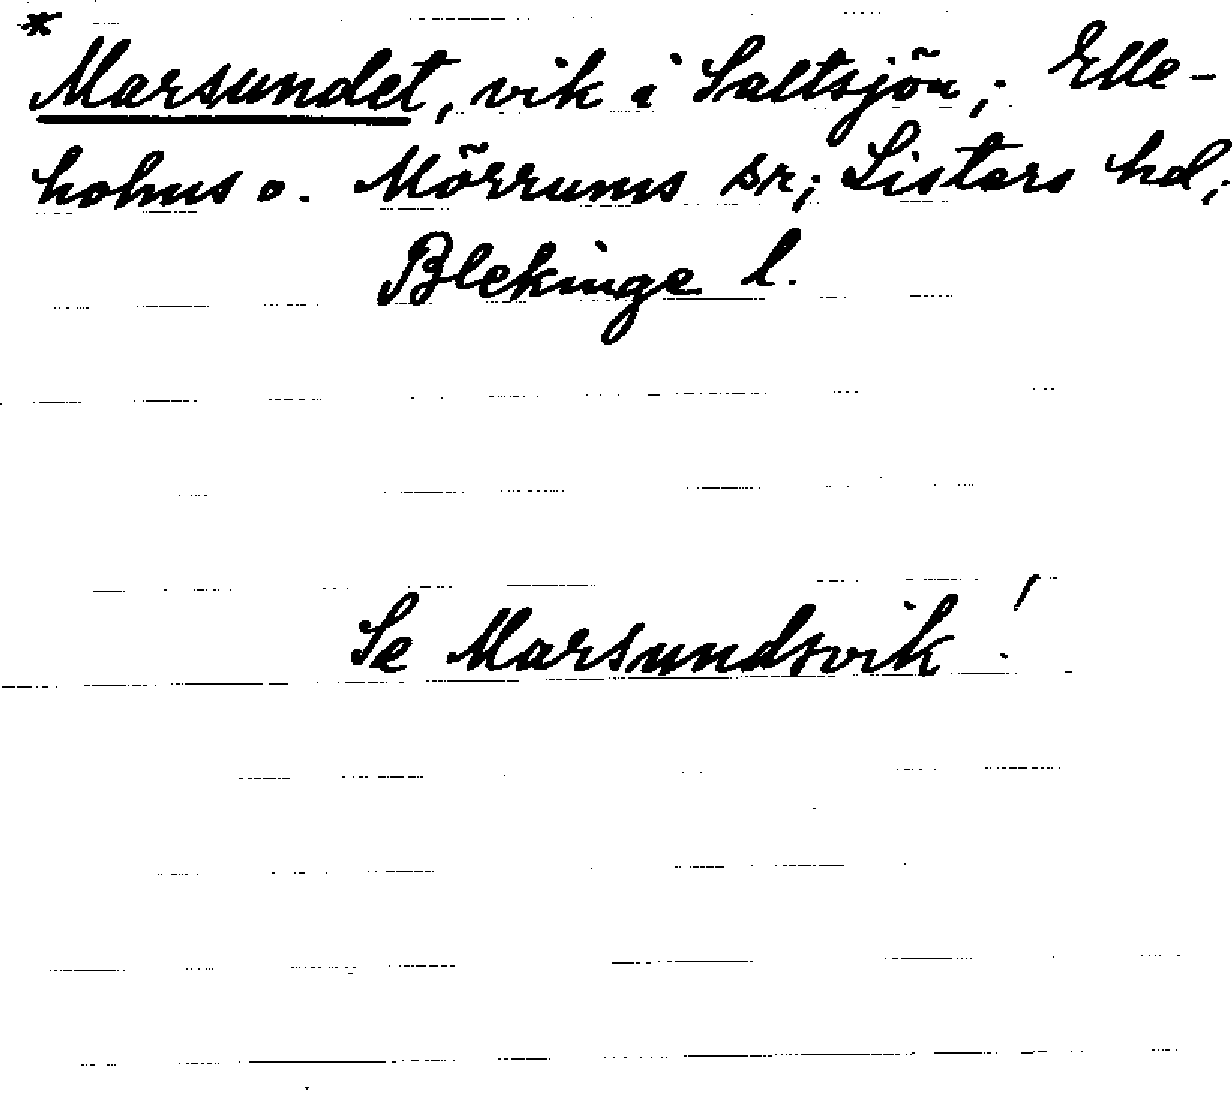 * Marsundet, vik i Saltsjön; Elle-
holms o. Mörrums sr; Listers hd;
Blekinge l.
Se Marsundsvik!